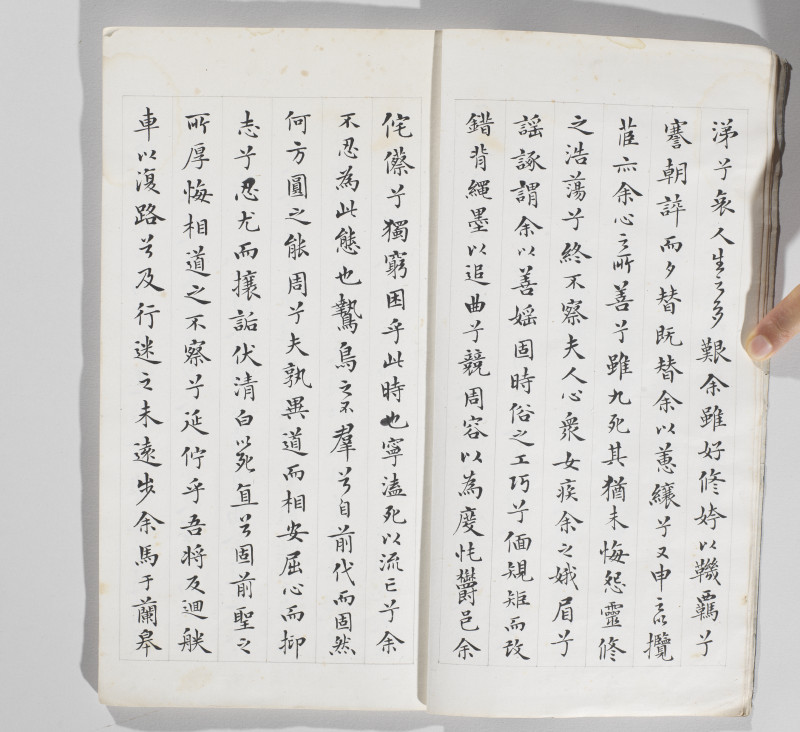 涕兮哀人生之多艱余雖好修姱以鞿羈兮
謇朝誶而夕替既替余以蕙纕兮又申之以攬
茝亦余心之所善兮雖九死其猶未悔怨靈修
之浩蕩兮終不察夫人心衆女疾余之娥眉兮
謡諑謂余以善婬固時俗之工巧兮偭規矩而改
錯背繩墨以追曲兮競周容以為度忳鬱邑余
侘傺兮獨窮困乎此時也寧溘死以流亡兮余
不忍為此態也鷙鳥之不羣兮自前代而固然
何方圓之能周兮夫孰異道而相安屈心而抑
志兮忍尤而攘詬伏清白以死直兮固前聖之
所厚悔相道之不察兮延佇乎吾將反迴朕
車以復路兮及行迷之未遠步余馬于蘭皋